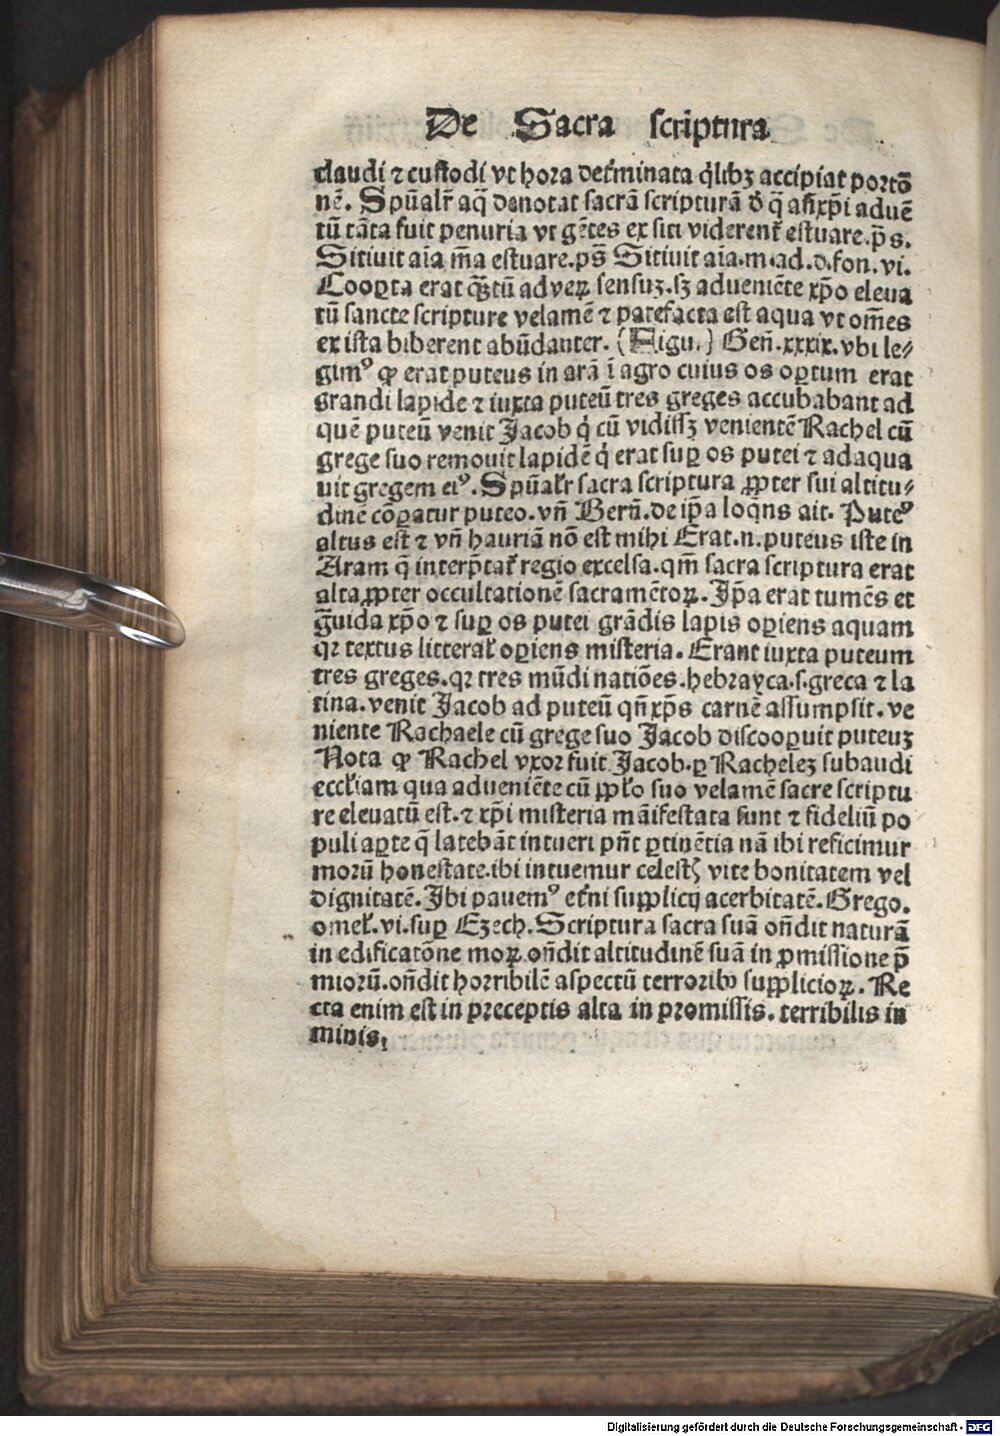 De Sacra scriptura
claudi ⁊ custodi vt hora det̃minata q̉libꝫ accipiat portõ
nẽ. Spũalr̃ aq̃ denotat sacrã scripturã ð q̃ an̄ xp̃i aduẽ
tũ tãta fuit penuria vt gẽtes ex siti viderent᷑ estuare. p̃s.
Sitiuit aĩa m̃a estuare. ps̃ Sitiuit aĩa. m. ad. d. fon. vi.
Cooꝑta erat q̃ꝫtũ ad veꝝ sensuꝫ. sꝫ adueniẽte xp̃o eleua
tũ sancte scripture velamẽ ⁊ patefacta est aqua vt om̃es
ex ista biberent abũdanter. (Figu.) Geñ. xxxix. vbi le⸗
gimꝰ ꝙ erat puteus in arã ĩ agro cuius os oꝑtum erat
grandi lapide ⁊ iuxta puteũ tres greges accubabant ad
quẽ puteũ venit Jacob q̉ cũ vidissꝫ venientẽ Rachel cũ
grege suo remouit lapidẽ q̉ erat suꝑ os putei ⁊ adaqua
uit gregem eiꝰ. Spũalr̃ sacra scriptura ꝓpter sui altitu⸗
dinẽ cõꝑatur puteo. vñ Berñ. de ip̃a loq̃ns ait. Puteꝰ
altus est ⁊ vñ hauriã nõ est mihi Erat. n. puteus iste in
Aram q̃ interp̃tat᷑ regio excelsa. qm̃ sacra scriptura erat
alta ꝓpter occultationẽ sacramẽtoꝝ. Jp̃a erat tumẽs et
g̃uida xp̃o ⁊ suꝑ os putei grãdis lapis oꝑiens aquam
qꝛ textus litteral̃ oꝑiens misteria. Erant iuxta puteum
tres greges. qꝛ tres mũdi natiões. hebrayca. s. greca ⁊ la
tina. venit Jacob ad puteũ qñ xp̃s carnẽ assumpsit. ve
niente Rachaele cũ grege suo Jacob discooꝑuit puteuꝫ
Nota ꝙ Rachel vxor fuit Jacob. ꝑ Racheleꝫ subaudi
eccl̃iam qua adueniẽte cũ ꝓpl̃o suo velamẽ sacre scriptu
re eleuatũ est. ⁊ xp̃i misteria mãifestata sunt ⁊ fideliũ po
puli aꝑte q̃ latebãt intueri pñt ꝑtinẽtia nã ibi reficimur
morũ honestate. ibi intuemur celestꝭ vite bonitatem vel
dignitatẽ. Jbi pauemꝰ et̃ni supplicij acerbitatẽ. Grego.
omel̃. vi. suꝑ Ezech. Scriptura sacra suã oñdit naturã
in edificatõne moꝝ. oñdit altitudinẽ suã in ꝓmissione p̃
miorũ. oñdit horribilẽ aspectũ terroribꝰ supplicioꝝ. Re
cta enim est in preceptis alta in promissis. terribilis in
minis.
Digitalisierung gefördert durch die Deutsche Forschungsgemeinschaft - DFG